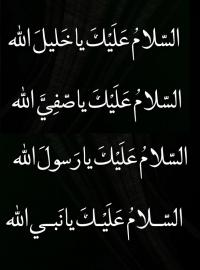 السّلامُ عَلَيْكَ يا خَليلَ الله
السّلامُ عَلَيْكَ يا صّفِيَّ الله
السّلامُ عَلَيْكَ يا رَسولَ الله
السّـلامُ عَلَيْـكَ يا نَبـي الله